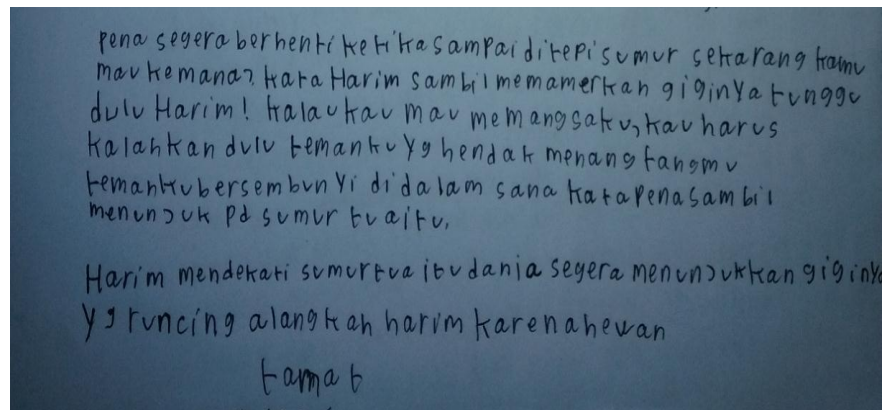 pena segera berhenti ketika sampai ditepi sumur sekarang kamu
mau kemana? kata Harim sambil memamerkan giginya tunggu
dulu Harim! kalau kau mau memangsaku, kau harus
kalahkan dulu temanku yg hendak menangtangmu
temanku bersembunyi didalam sana kata pena sambil
menunjuk pd sumur tua itu.
Harim mendekati sumur tua itu dan ia segera menunjukkan giginya
yg runcing alangkah harim karena hewan
tamat